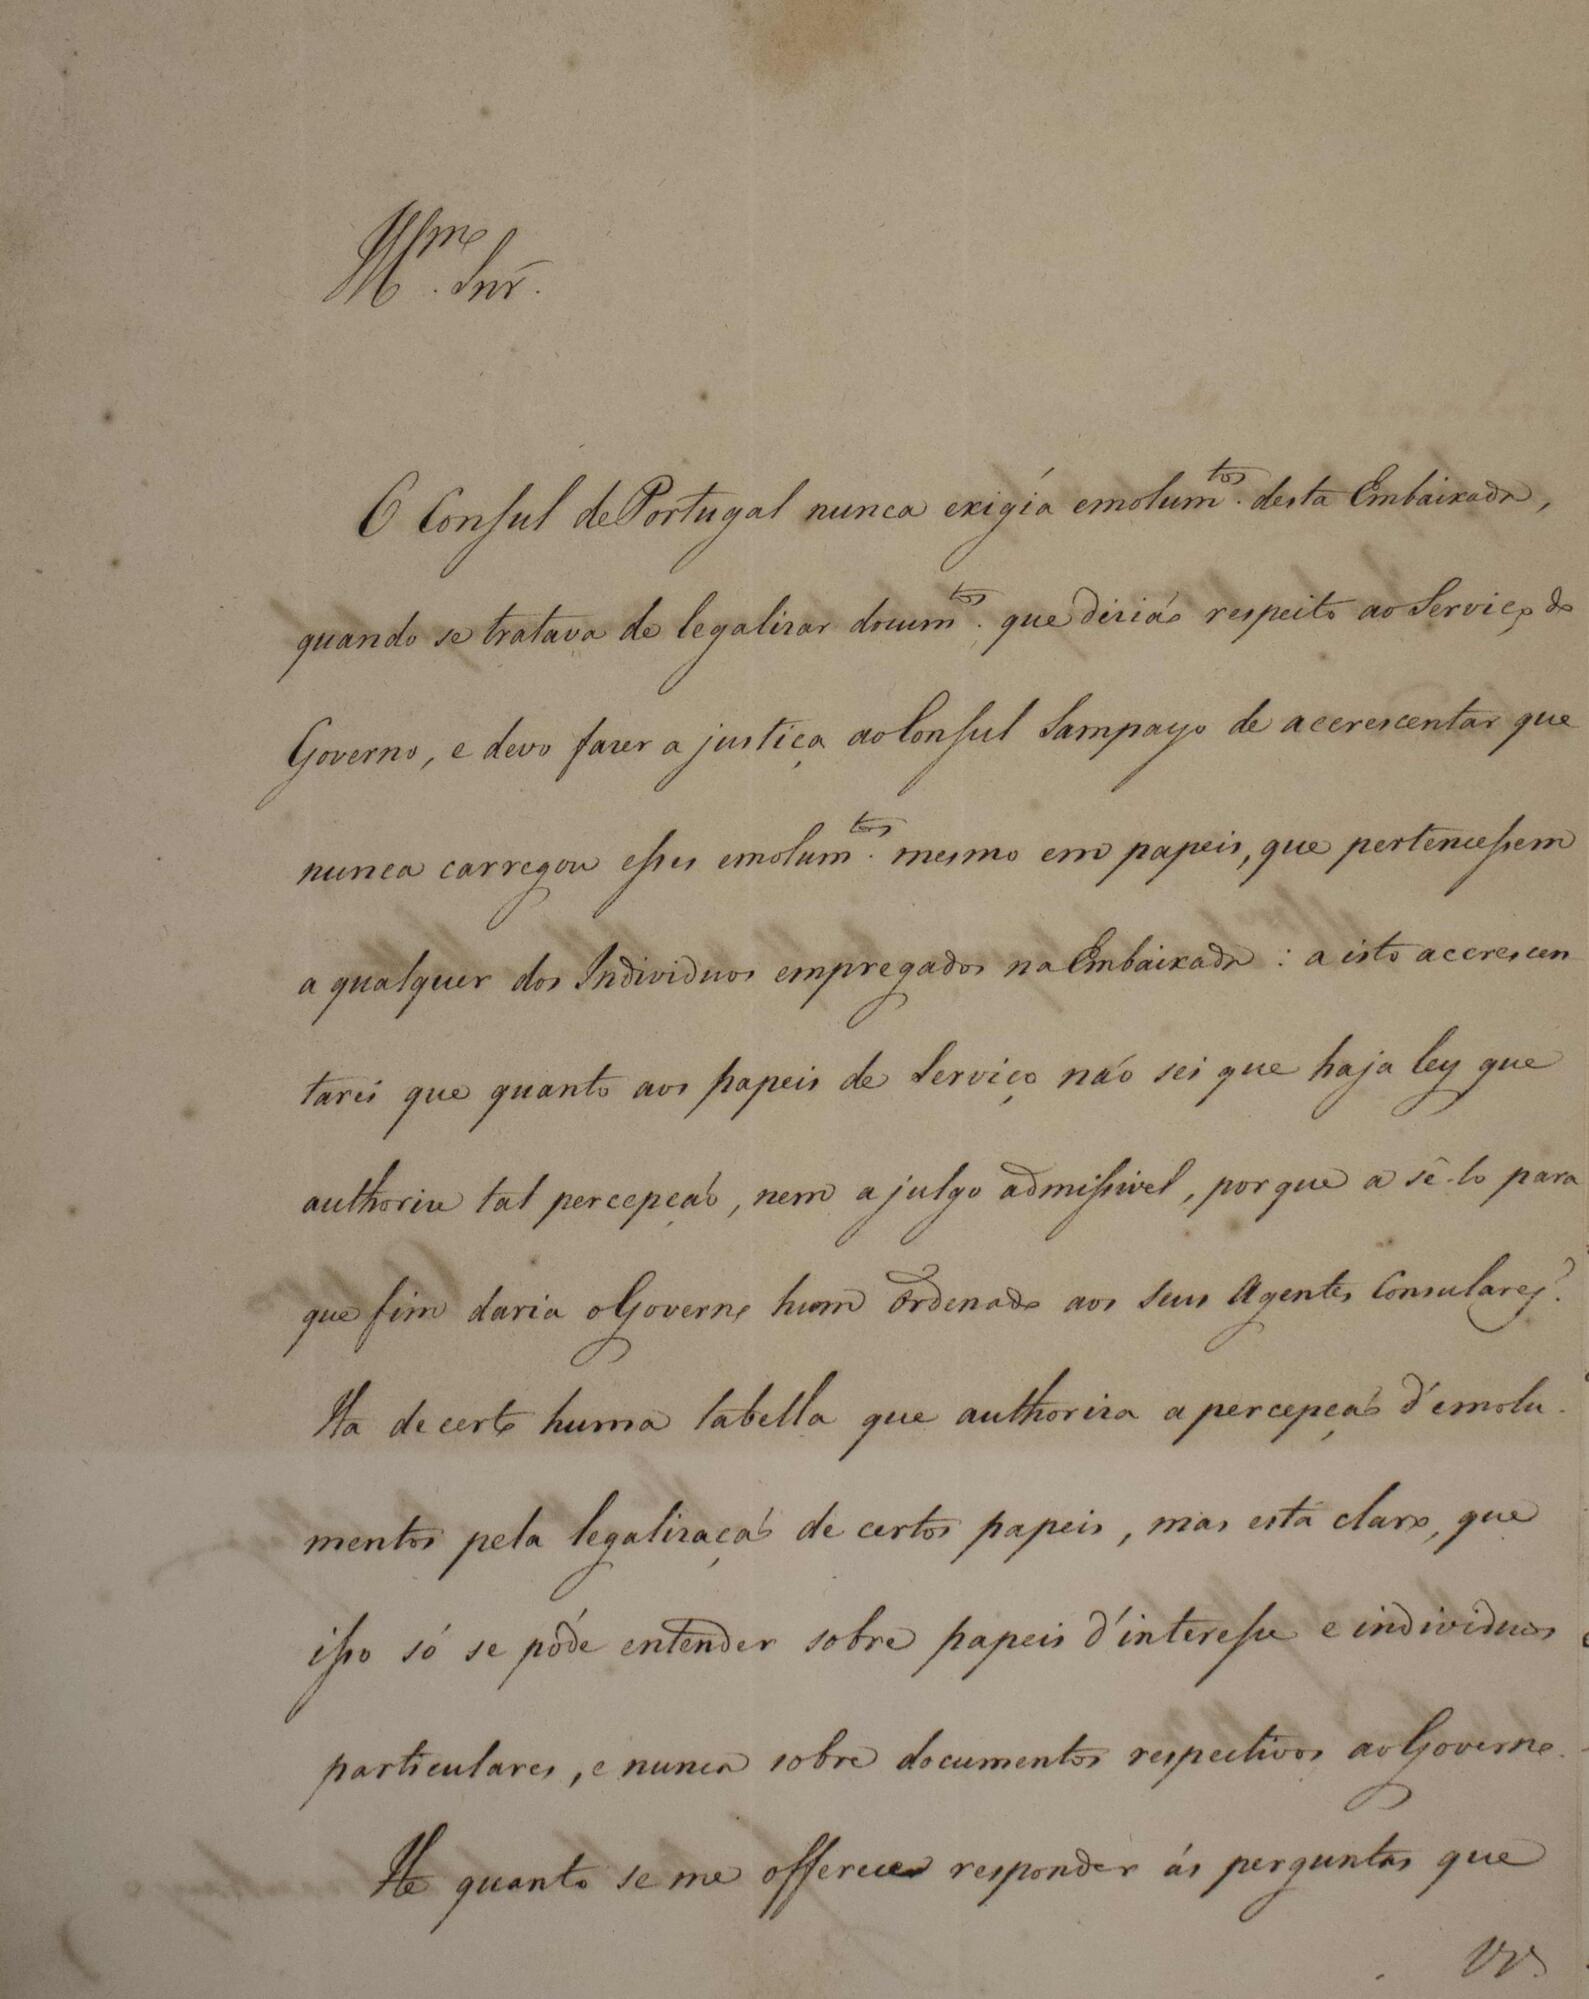 Illm.º Snr.
O Consul de Portugal nunca exigía emolum.tos desta Embaixada,
quando se tratava de legalizar docum.tos que diziáo respeito ao Serviço do
Governo, e devo fazer a justiça ao Consul Sampayo de accrescentar que
nunca carregou esses emolum.tos mesmo em papeis, que pertencessem
a qualquer dos Individuos empregados na Embaixada : a isto accrescen
tarei que quanto aos papeis de Serviço náo sei que haja ley que
authorize tal percepçaó, nem a julgo admissivel, porque a sê-lo para
que fim daria o Governo hum Ordenado aos seus Agentes Consulares?
Ha de certo huma tabella que authoriza a percepçaó d'emolu-
mentos pela legalizaçaó de certos papeis, mas está claro, que
isso só se póde entender sobre papeis d'interesse e individuos
particulares, e nunca sobre documentos respectivos ao Governo.
He quanto se me offerece responder ás perguntas que
VS.